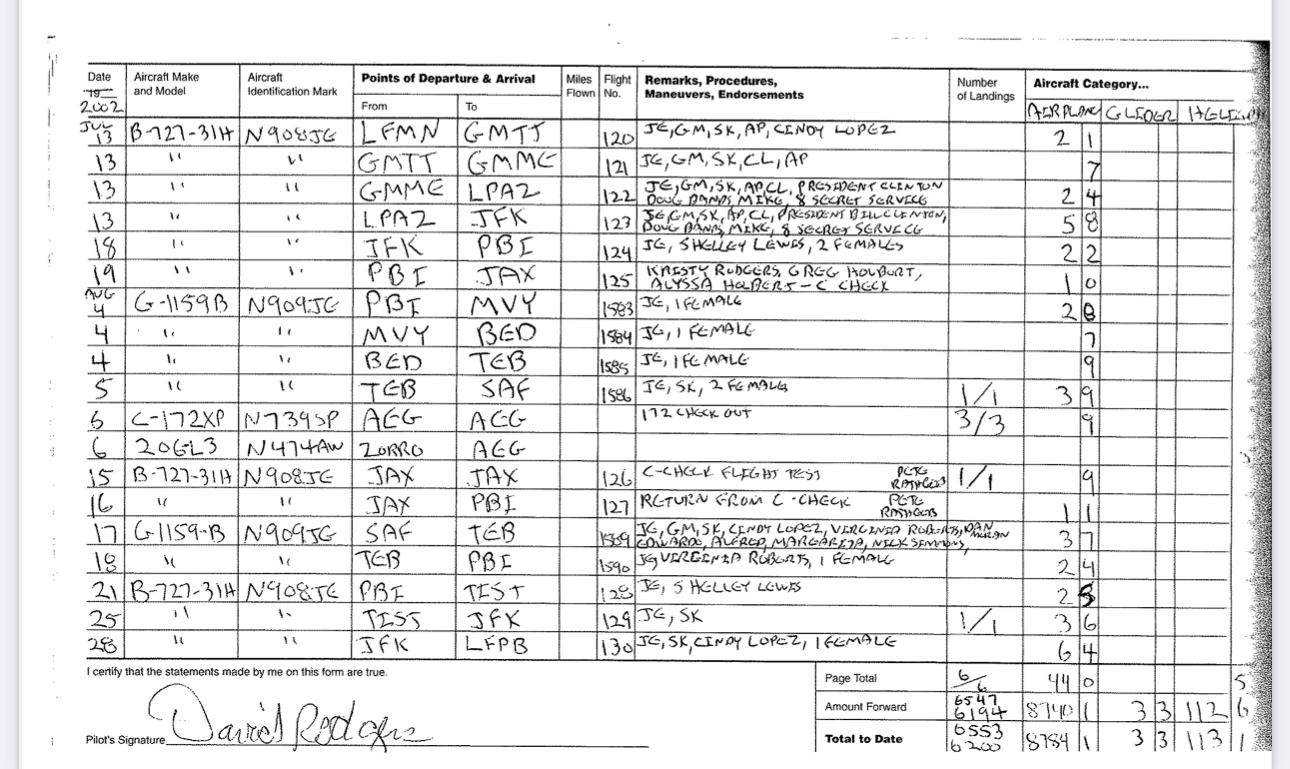 Date Aircraft Make and Model Aircraft Identification Mark Points of Departure & Arrival Miles Flown Flight No. Remarks, Procedures, Maneuvers, Endorsements Number of Landings Aircraft Category...
19 2002 From To AIRPLANE GLIDER
JUL 13 B-727-31H N908JE LFMN GMTT 120 JE, GM, SK, AP, CINDY LOPEZ 2 1
13 " " GMTT GMME 121 JE, GM, SK, CL, AP 7
13 " " GMME LPAZ 122 JE, GM, SK, AP, CL, PRESIDENT CLINTON
DOUG BANDS, MIKE, 8 SECRET SERVICE 2 4
13 " " LPAZ JFK 123 JE, GM, SK, AP, CL, PRESIDENT BILL CLINTON,
DOUG BANDS, MIKE, 8 SECRET SERVICE 5 8
18 " " JFK PBI 124 JE, SHELLEY LEWIS, 2 FEMALES 2 2
19 " " PBI JAX 125 KRISTY RODGERS, GREG HOLBERT,
ALYSSA HOLBERT - C CHECK 1 0
AUG 4 G-1159B N909JE PBI MVY 1583 JE, 1 FEMALE 2 8
4 " " MVY BED 1584 JE, 1 FEMALE 7
4 " " BED TEB 1585 JE, 1 FEMALE 9
5 " " TEB SAF 1586 JE, SK, 2 FEMALES 1/1 3 9
6 C-172XP N739SP AEG AEG 172 CHECK OUT 3/3 9
6 206L3 N474AW ZORRO AEG
15 B-727-31H N908JE JAX JAX 126 C-CHECK FLIGHT TEST PETE RATHGEB 1/1 9
16 " " JAX PBI 127 RETURN FROM C-CHECK PETE RATHGEB 1 1
17 G-1159-B N909JE SAF TEB 1589 JE, GM, SK, CINDY LOPEZ, VIRGINIA ROBERTS, DAN MORAN
EDWARDO, ALFRED, MARGARITA, NICK SIMMONS, 3 7
18 " " TEB PBI 1590 JE, VIRGINIA ROBERTS, 1 FEMALE 2 4
21 B-727-31H N908JE PBI TIST 128 JE, SHELLEY LEWIS 2 5
25 " " TIST JFK 129 JE, SK 1/1 3 6
28 " " JFK LFPB 130 JE, SK, CINDY LOPEZ, 1 FEMALE 6 4
I certify that the statements made by me on this form are true. Page Total 6/6 44 0 5
Amount Forward 6547 6194 8740 1 3 3 112 6
Pilot's Signature David Rodgers Total to Date 6553 6200 8784 1 3 3 113 1